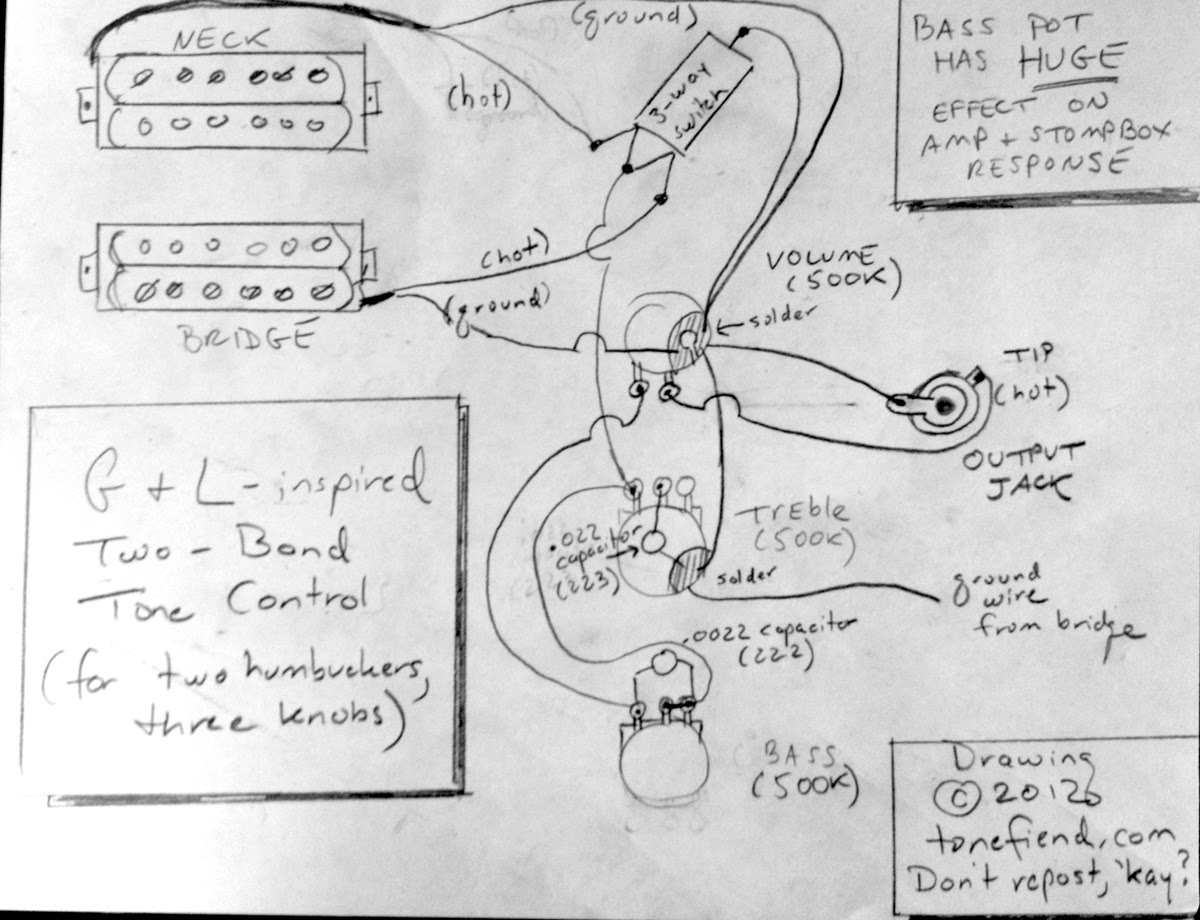 (ground)
NECK
(hot)
3-way
switch
BASS POT
HAS HUGE
EFFECT ON
AMP + STOMPBOX
RESPONSE
(hot)
(ground)
BRIDGE
VOLUME
(500K)
solder
TIP
(hot)
OUTPUT
JACK
G + L-inspired
Two-Band
Tone Control
(for two humbuckers,
three knobs)
TrEble
(500K)
.022
capacitor
(223)
solder
ground
wire
from bridge
.0022 capacitor
(222)
BASS
(500K)
Drawing
© 2012
tonefiend.com
Don't repost, 'kay?